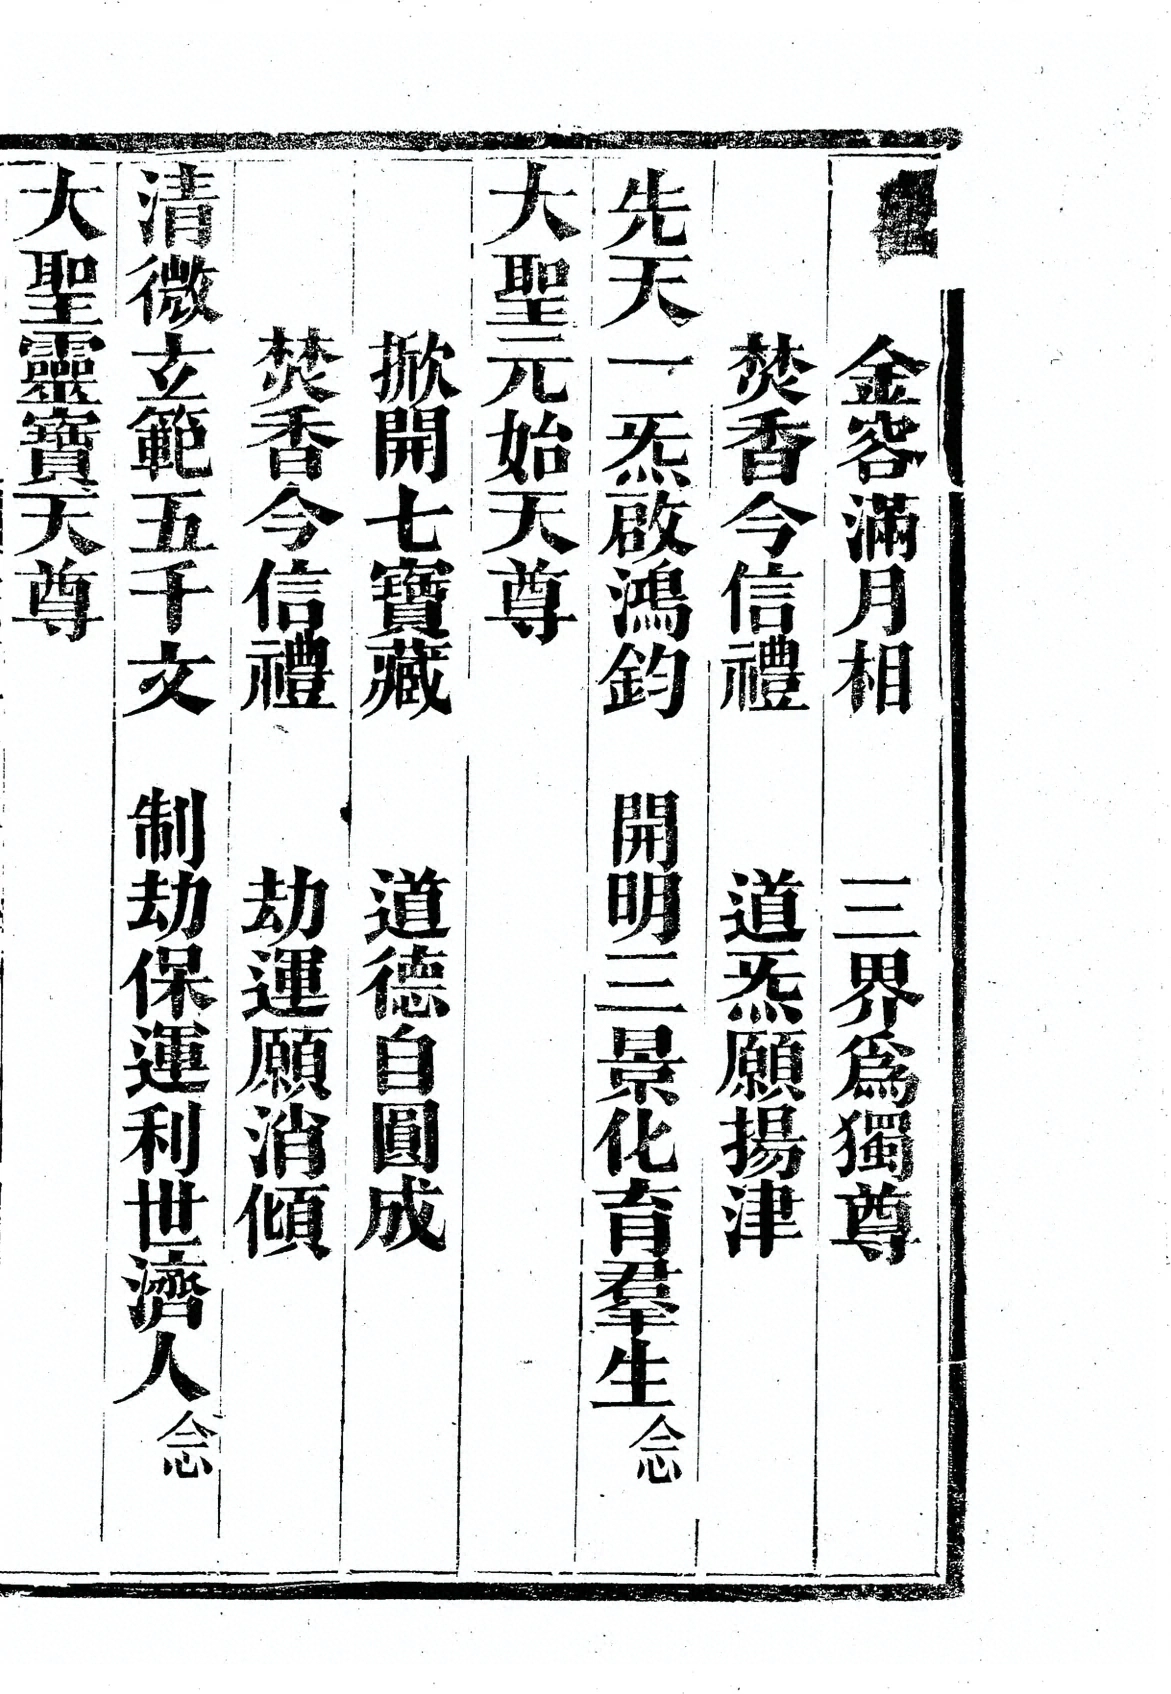 金容滿月相　三界爲獨尊
焚香今信禮　道炁願揚津
先天一炁啟鴻鈞　開明三景化育羣生念
大聖元始天尊
掀開七寶藏　道德自圓成
焚香今信禮　劫運願消傾
清微玄範五千文　制劫保運利世濟人念
大聖靈寶天尊